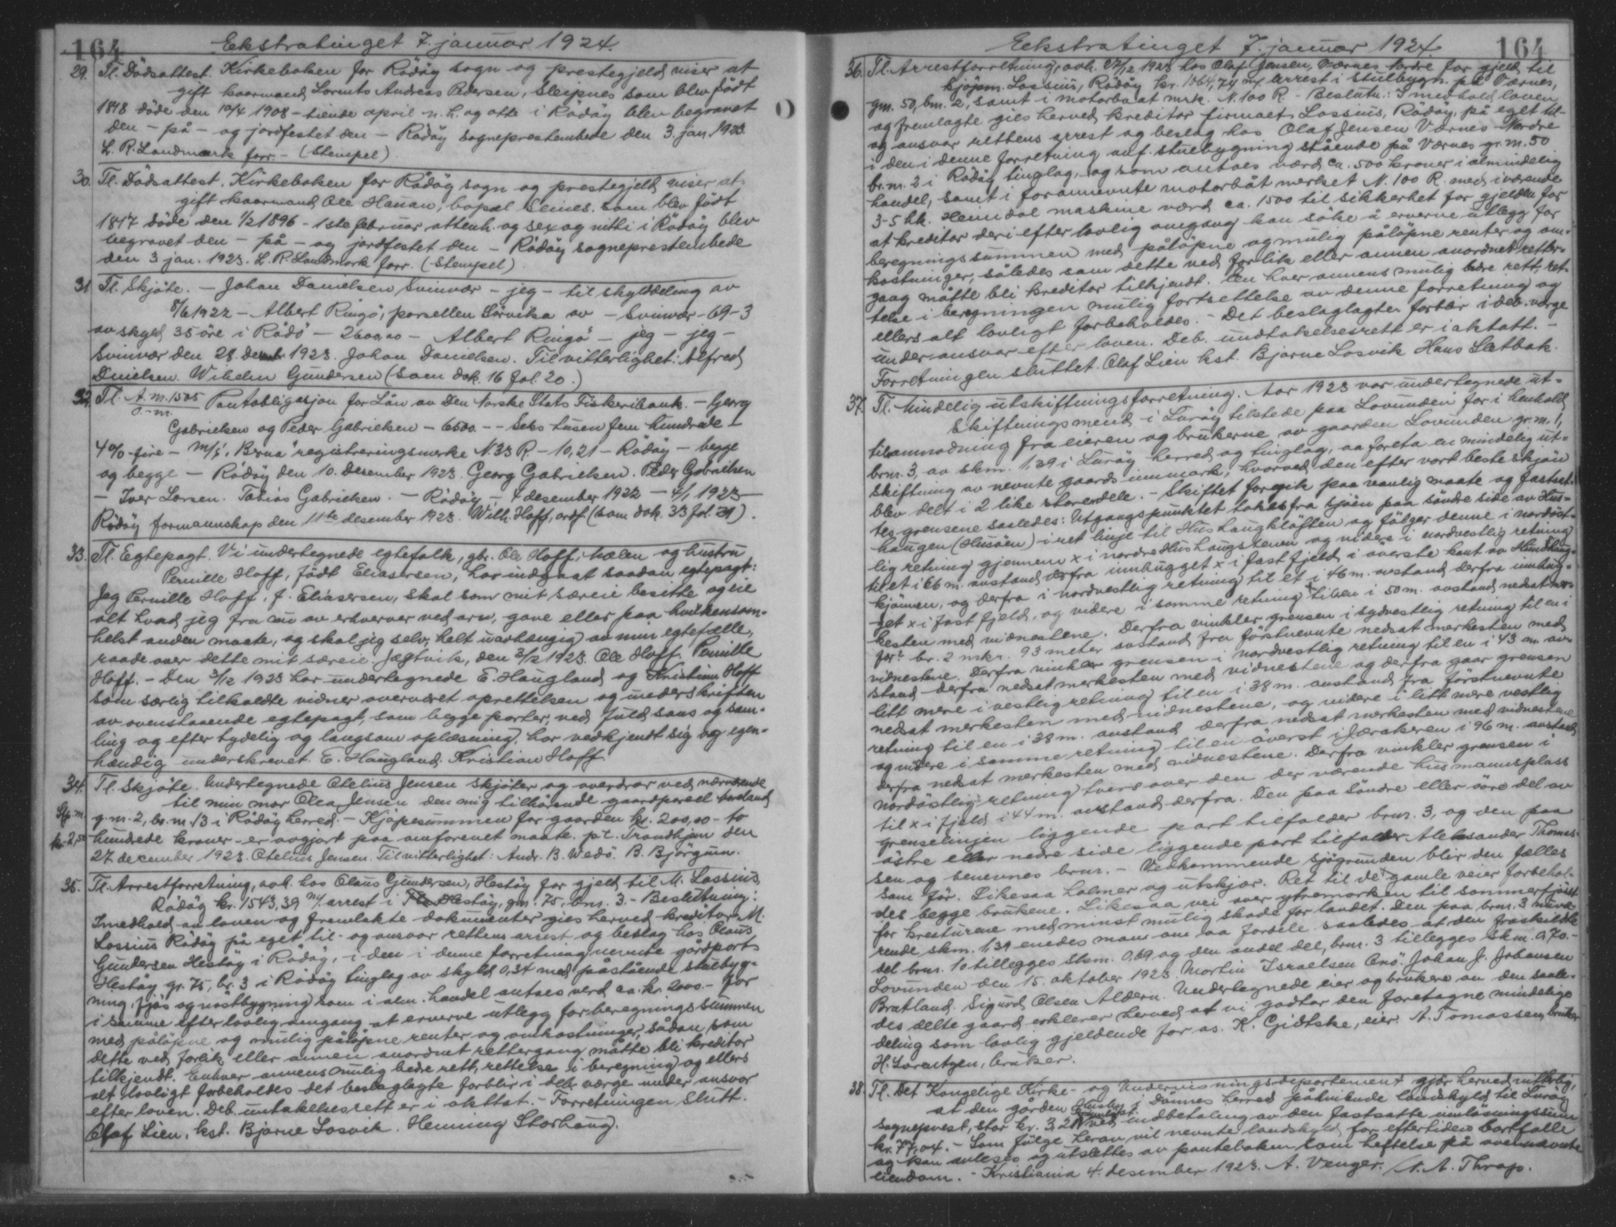 164
Ekstratinget 7. januar 1924.
29. Tl. Dødsattest. Kirkeboken for Rödöy sogn og prestegjeld viser at
gift kaarmand Lorents Andreas Pedersen, Sleipnes som blev født
1848 døde den 10/4 1908 - tiende april n. h. og otte i Rödöy blev begravet
den - på - og jordfestet den - Rödöy sogneprestembede den 3 jan. 1923.
L. R. Landmark forr. - (Stempel)
30. Tl. Dødsattest. Kirkeboken for Rödöy sogn og prestegjeld viser at
gift kaarmand Ole Hansen, bopæl Selnes. som blev født
1817 døde den 1/2 1896 - 1ste februar attenh. og sex og nitti i Rödöy blev
begravet den - på - og jordfestet den - Rödöy sogneprestembede
den 3 jan. 1923. L. R. Landmark forr. (Stempel)
31 Tl. Skjöte. - Johan Danielsen Svinvær - jeg - til skylddeling av
8/6 1922 - Albert Ringö, parsellen Sörvika av - Svinvær 69-3
av skyld 35 öre i Rödö - 2600,00 - Albert Ringö - jeg - jeg -
Svinvær den 28 Decemb 1923. Johan Danielsen. Til vitterlighet: Alfred
Danielsen. Wilhelm Gundersen (som dok. 16 fol 20.)
32. Tl. A. m. 1505 Pantobligasjon for Lån av Den Norske Stats Fiskeribank. - Georg
Gabrielsen og Peder Gabrielsen - 6500 - - Seks tusen fem hundrede -
4 % - fire - m/s. "Brua" registreringsmerke N. 33 R - 10,21 - Rödöy - begge
og begge - Rödöy den 10. desember 1923. Georg Gabrielsen. Peder Gabrielsen
- Iver Larsen. Tobias Gabrielsen. - Rödöy - 7 desember 1922 - 4/1 1923 -
Rödöy formannskap den 11te desember 1923. Wilh. Hoff, ordf. (som dok. 33 fol 31).
33. Tl. Egtepagt. Vi undertegnede egtefolk, gbr. Ole Hoff, Mælen og hustru
Pernille Hoff, født Eliasersen, har indgaat saadan egtepagt:
Jeg Pernille Hoff, f. Eliasersen, skal som mit særeie besitte og eie
alt hvad jeg fra nu av erhverver ved arv, gave eller paa hvilkensom-
helst anden maate, og skal jeg selv, helt uavhengig av min egtefælle,
raade over dette mit særeie. Jægtvik, den 3/12 1923. Ole Hoff. Pernille
Hoff. - Den 3/12 1923 har undertegnede E. Haugland og Kristian Hoff
som særlig tilkaldte vidner overværet oprettelsen og underskriften
av ovenstaaende egtepagt, som begge parter, ved fuld sans og sam-
ling og efter tydelig og langsom oplæsning, har vedkjendt sig og egen-
hændig underskrevet. E. Haugland. Kristian Hoff.
34. Tl. Skjöte. Undertegnede Otelius Jensen skjöter og overdrar ved nærværende
til min mor Olea Jensen den mig tilhörende gaardparsel
g. m. 2, br. m. 13 i Rödöy herred. - Kjøpesummen for gaarden kr. 200,00 - to
hundrede kroner - er avgjort paa omforenet maate. p. t. Trondhjem den
27 desember 1923. Otelius Jensen. Til vitterlighet: Andr. B. Wedö. B. Bjørgum.
35. Tl. Arrestforretning, avh. hos Claus Gundersen, Hestöy for gjeld til M. Lossius
Rödöy kr. 1543,39 m/ arrest i Hestöy, gm. 75, bm. 3. - Beslutning:
I medhold av loven og fremlagte dokumenter gies herved kreditor M.
Lossius Rödöy på eget til- og ansvar rettens arrest og beslag hos Claus
Gundersen Hestöy i Rödöy, i den i denne forretning nevnte gårdpart
Hestöy gr. 75, br. 3 i Rödöy tinglag av skyld 0,34 med påstående stuebyg-
ning, fjøs og nostbygning som i alm. handel antaes verd ca. kr. 1000.- for
i samme efter lovlig omgang at erverve utlegg for beregningssummen
med påløpne og mulig påløpne renter og omkostninger, sådan som
dette ved forlik eller annen anordnet rettergang måtte bli kreditor
tilkjendt. Enhver annens mulig bedre rett, rettelse i beregning og ellers
alt lovligt forbeholdes det beslaglagte forblir i debs verge under ansvar
efter loven. Deb. undtakelsesrett er i akttat. - Forretningen slutt.
Olaf Lien, kst. Bjarne Losvik. Henning Storhaug.
164
Ekstratinget 7. januar 1924
36. Tl. Arrestforretning, avh. 27/12 1923 hos Olaf Jensen, Værnes nordre for gjeld til
kjøpm. Lossius, Rödöy kr. 1064,74 m/ arrest i stuebygn. på Værnes,
gm. 50, bm. 2, samt i motorbåt mrk. N. 100 R - Beslutn.: I medhold loven
og fremlagte gies herved kreditor firmaet Lossius, Rödöy, på eget til-
og ansvar rettens arrest og beslag hos Olaf Jensen Værnes Nordre
i den i denne forretning anf. stuebygning stående på Værnes gr. m. 50
br. m. 2 i Rödöy tinglag, og som antaes verd ca. 500 kroner i almindelig
handel, samt i forannevnte motorbåt merket N. 100 R. med iværende
3-5 hk. Heimdal maskine værd ca. 1500 til sikkerhet for gjelden for
at kreditor deri efter lovlig omgang kan søke å erverve utlegg for
beregningssummen med påløpne og mulig påløpne renter og om-
kostninger, således som dette ved forlik eller annen anordnet retter-
gang måtte bli kreditor tilkjendt. En hver annens mulig bedre rett, ret-
telse i beregningen mulig fortsettelse av denne forretning og
ellers alt lovligt forbeholdes. - Det beslaglagte forblir i deb. verge
under ansvar efter loven. Deb. undtakelsesrett er i aktatt. -
Forretningen sluttet. Olaf Lien kst. Bjarne Losvik Hans Sætbak.
37. Tl. Mindelig utskiftningsforretning. Aar 1923 var undertegnede ut-
skiftningsmend i Luröy tilstede paa Lovunden for i henhold
til anmodning fra eieren og brukerne av gaarden Lovunden gr. m. 1,
brm. 3 av skm. 1,39 i Luröy herred og tinglag, aa foreta en mindelig ut-
skiftning av nevnte gaards innmark, hvorved den efter vort beste skjøn
blev delt i 2 like store dele. - Skiftet foregik paa vanlig maate og fastsat-
tes grensene saaledes: Utgangspunktet tokes fra sjøen paa söndre side av Hus-
haugen (Husöen) i ret linje til Hushaugkløften og følger denne i nordøst-
lig retning gjennem x i nordre Hushaugs renen og videre i nordvestlig retning
til et i 66 m. avstand derfra innhugget x i fast fjeld i øverste kant av
kjønnen, og derfra i nordvestlig retning til et i 46 m. avstand derfra innhug-
get x i fast fjeld, og videre i samme retning til en i 50 m. avstand nedsat mer-
kesten med vidnestene. Derfra vinkler grensen i sydvestlig retning til en i
for br. 2 mkr. 93 meter avstand fra førstnevnte nedsat merkesten med
vidnestene. Derfra vinkler grensen i nordvestlig retning til en i 43 m. av-
stand derfra nedsat merkesten med vidnestene og derfra gaar grensen
litt mere i vestlig retning til en i 38 m. avstand fra førstnevnte
nedsat merkesten med vidnestene, og videre i litt mere vestlig
retning til en i 38 m. avstand derfra nedsat merkesten med vidnestene
og videre i samme retning til en øverst i Jærakeren i 96 m. avstand
derfra nedsat merkesten med vidnestene. Derfra vinkler grensen i
nordøstlig retning tvers over den der værende husmannsplass
til x i fjeld i 44 m. avstand derfra. Den paa söndre eller øvre del av
grenselinjen liggende part tilfalder brm. 3, og den paa
østre eller nedre side liggende part tilfalder Aleksander Thomes-
sen og senevnes brm. - Vedkommende sjøgrunden blir den fælles
som før. Likesaa holmer og utskjær. Ret til de gamle veier forbehol-
des begge brukene. Likesaa vei over ytremarken til sommerfjøset
for kreaturene med minst mulig skade for landet. Den paa brm. 3 nuvæ-
rende skm. 1,39 enedes man om aa fordele saaledes at den fraskildte
del brm. 10 tillegges skm. 0,69 og den andel del, brm. 3 tillegges skm. 0,70.-
Lovunden den 15. oktober 1923 Martin Israelsen Onö. Johan J. Johansen
Bratland. Sigurd Olsen Aldern. Undertegnede eier og brukere av den saale-
des delte gaard erklærer herved at vi godtar den foretagne mindelige
deling som lovlig gjeldende for os. K. Gidtske, eier. A. Tomassen, bruker
H. Lorentzen, bruker.
38. Tl. Det Kongelige Kirke- og Undervisningsdepartement gjør herved vitterlig,
at den gården i Dønnes herred påhvilende landskyld til Luröy
sognekvest, stor kr. 3,28 er ved indbetaling av den fastsatte innløsningssum
kr. 77,04. - Som følge herav vil nevnte landskyld for eftertiden bortfalle
og kan avleses og utslettes av pantebøkene som heftelse på ovennevnte
eiendom. - Kristiania 4. desember 1923. A. Venger. /N. A. Thrap.